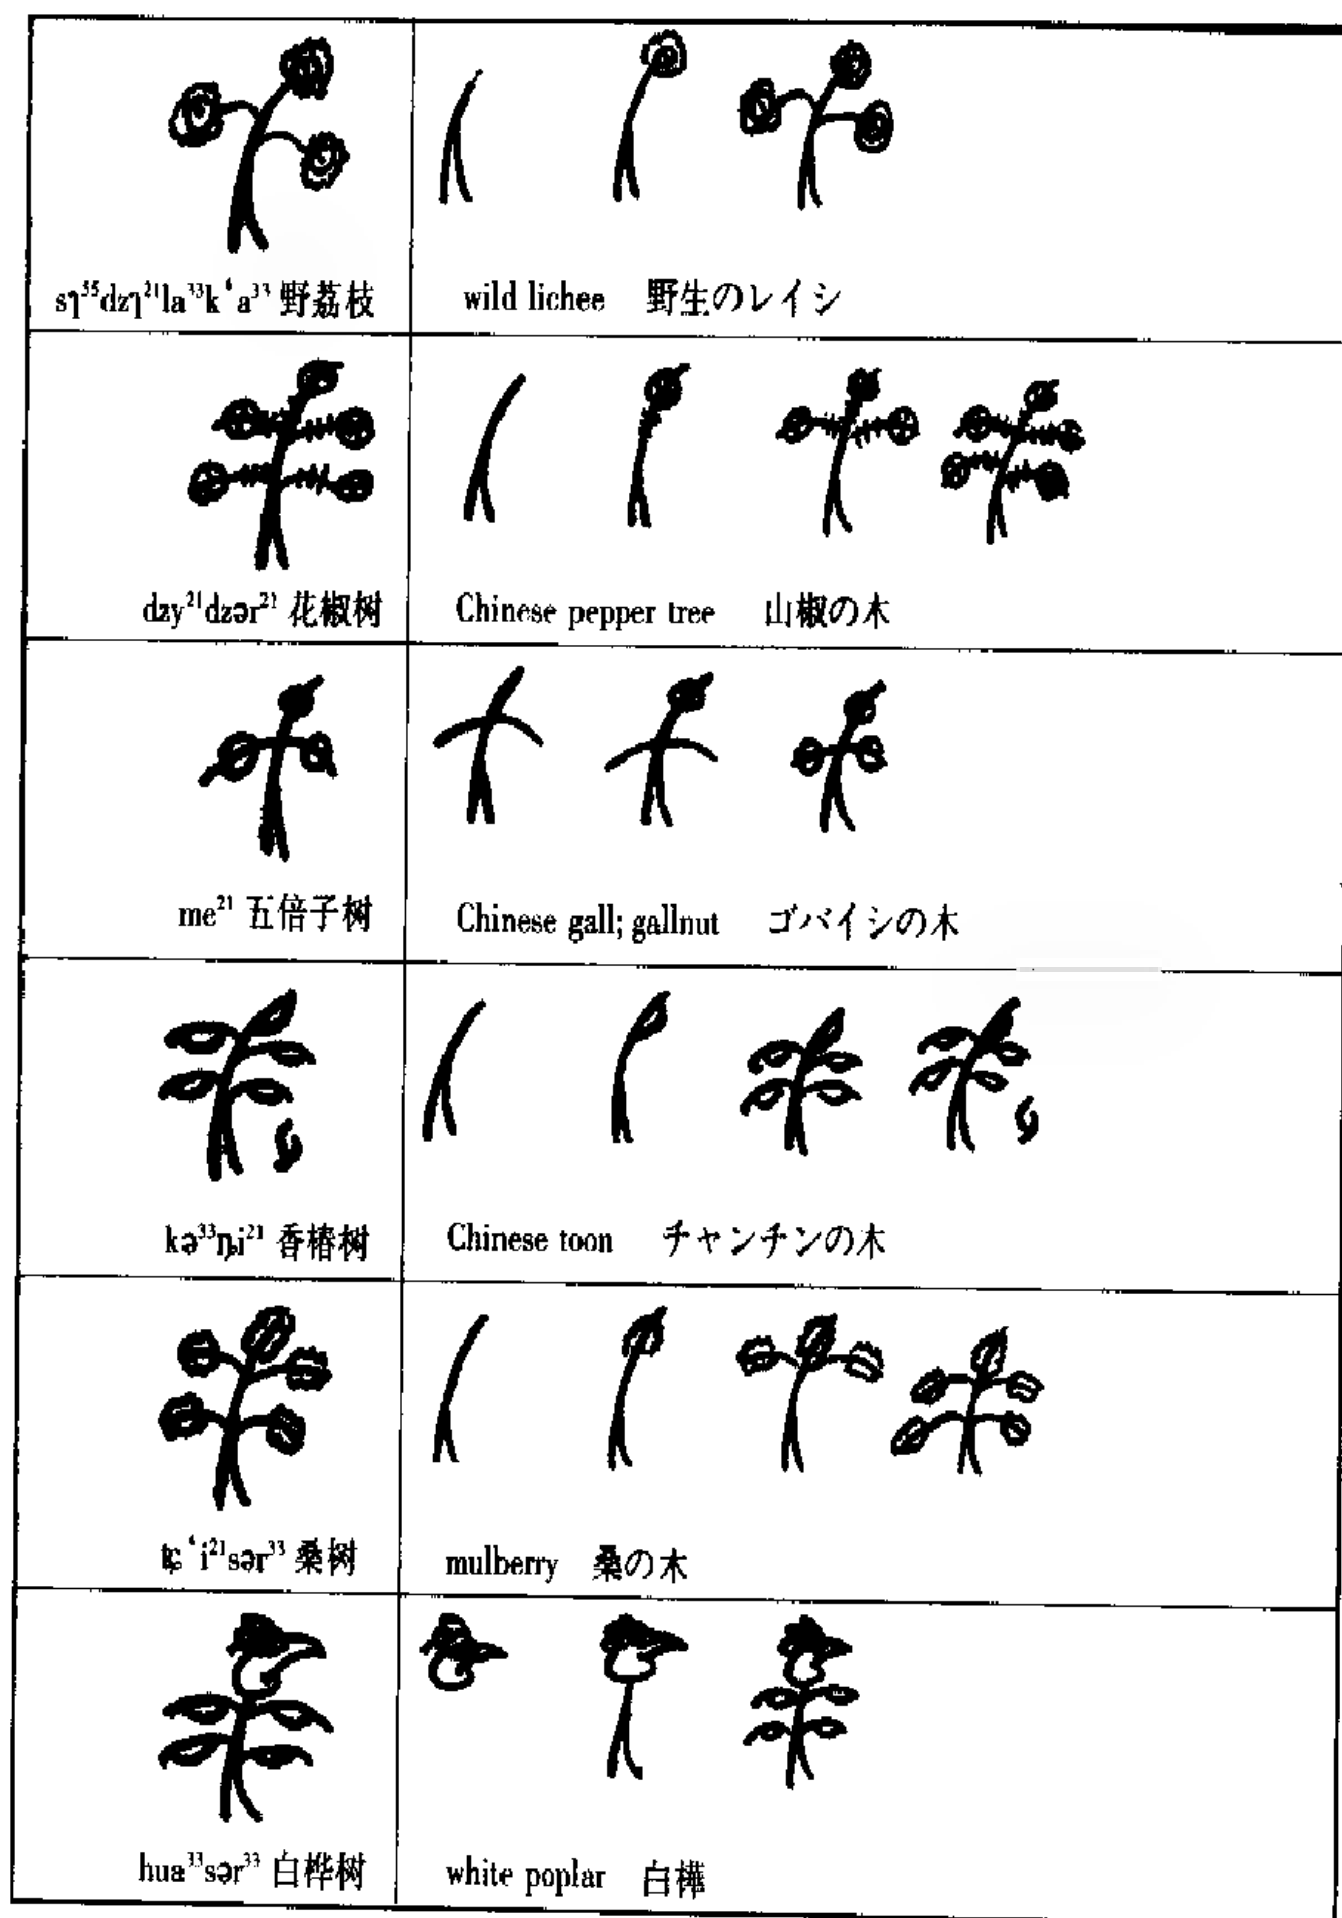 sɿ⁵⁵dzɿ²¹la³³kʻa³³ 野荔枝
wild lichee 野生のレイシ
dzy²¹dzər²¹ 花椒树
Chinese pepper tree 山椒の木
me²¹ 五倍子树
Chinese gall; gallnut ゴバイシの木
kə³³ȵi²¹ 香椿树
Chinese toon チャンチンの木
tɕʻi²¹sər³³ 桑树
mulberry 桑の木
hua³³sər³³ 白桦树
white poplar 白樺